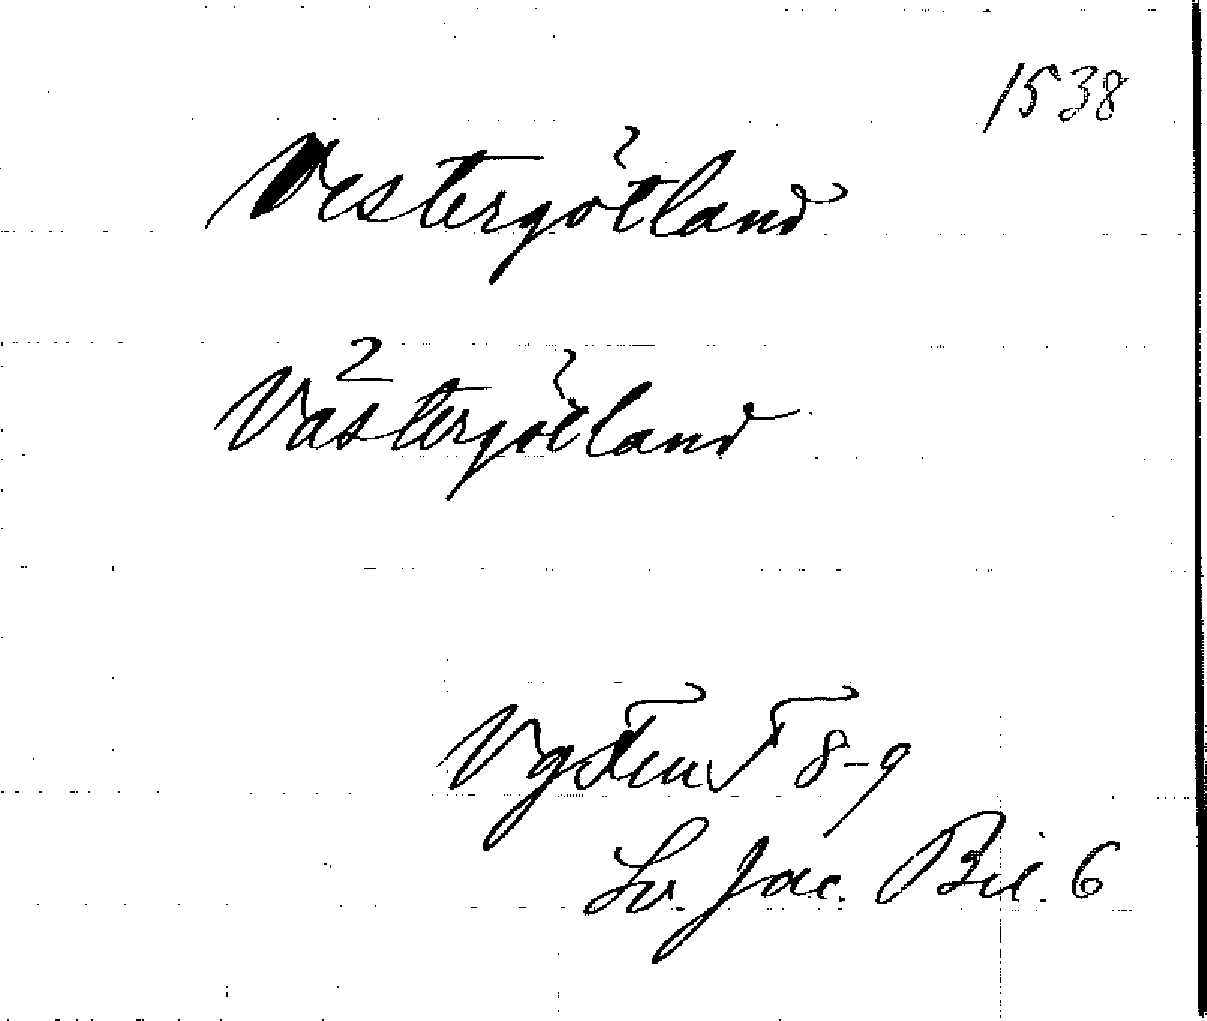 1538
Vestergötland
Västergötland
Vg Fem F 8-9
Lv. Jac. Bil. 6